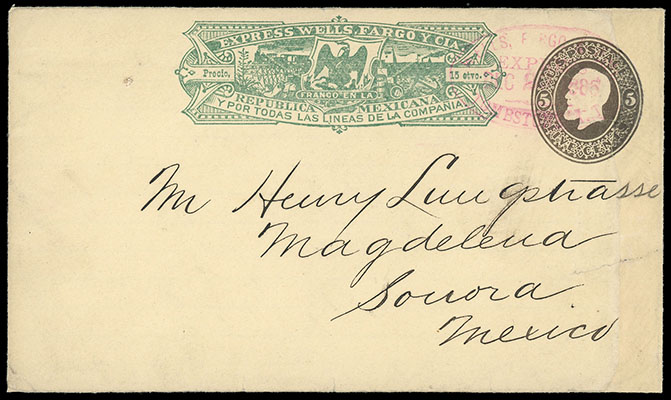 EXPRESS WELLS, FARGO Y CIA.
Precio, 15 ctvo.
FRANCO EN LA
REPUBLICA MEXICANA
Y POR TODAS LAS LINEAS DE LA COMPAÑIA
S, FARGO
EXP
5 5
Mr Henry
Magdelena
Sonora
Mexico